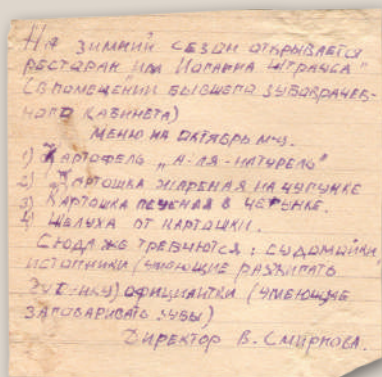 На зимний сезон открывается
ресторан им Иоганна Штрауса"
(в помещении бывшего зубоврачеб-
ного кабинета)
Меню на октябрь м-ц.
1) Картофель „а-ля-натурель"
2) Картошка жареная на чугунке
3) Картошка печеная в чегунке.
4) Шелуха от картошки.
Сюда же требуются: судомойки
истопники (умеющие разжигать
) официантки (умеющие
заговаривать зубы)
Директор В. Смирнова.